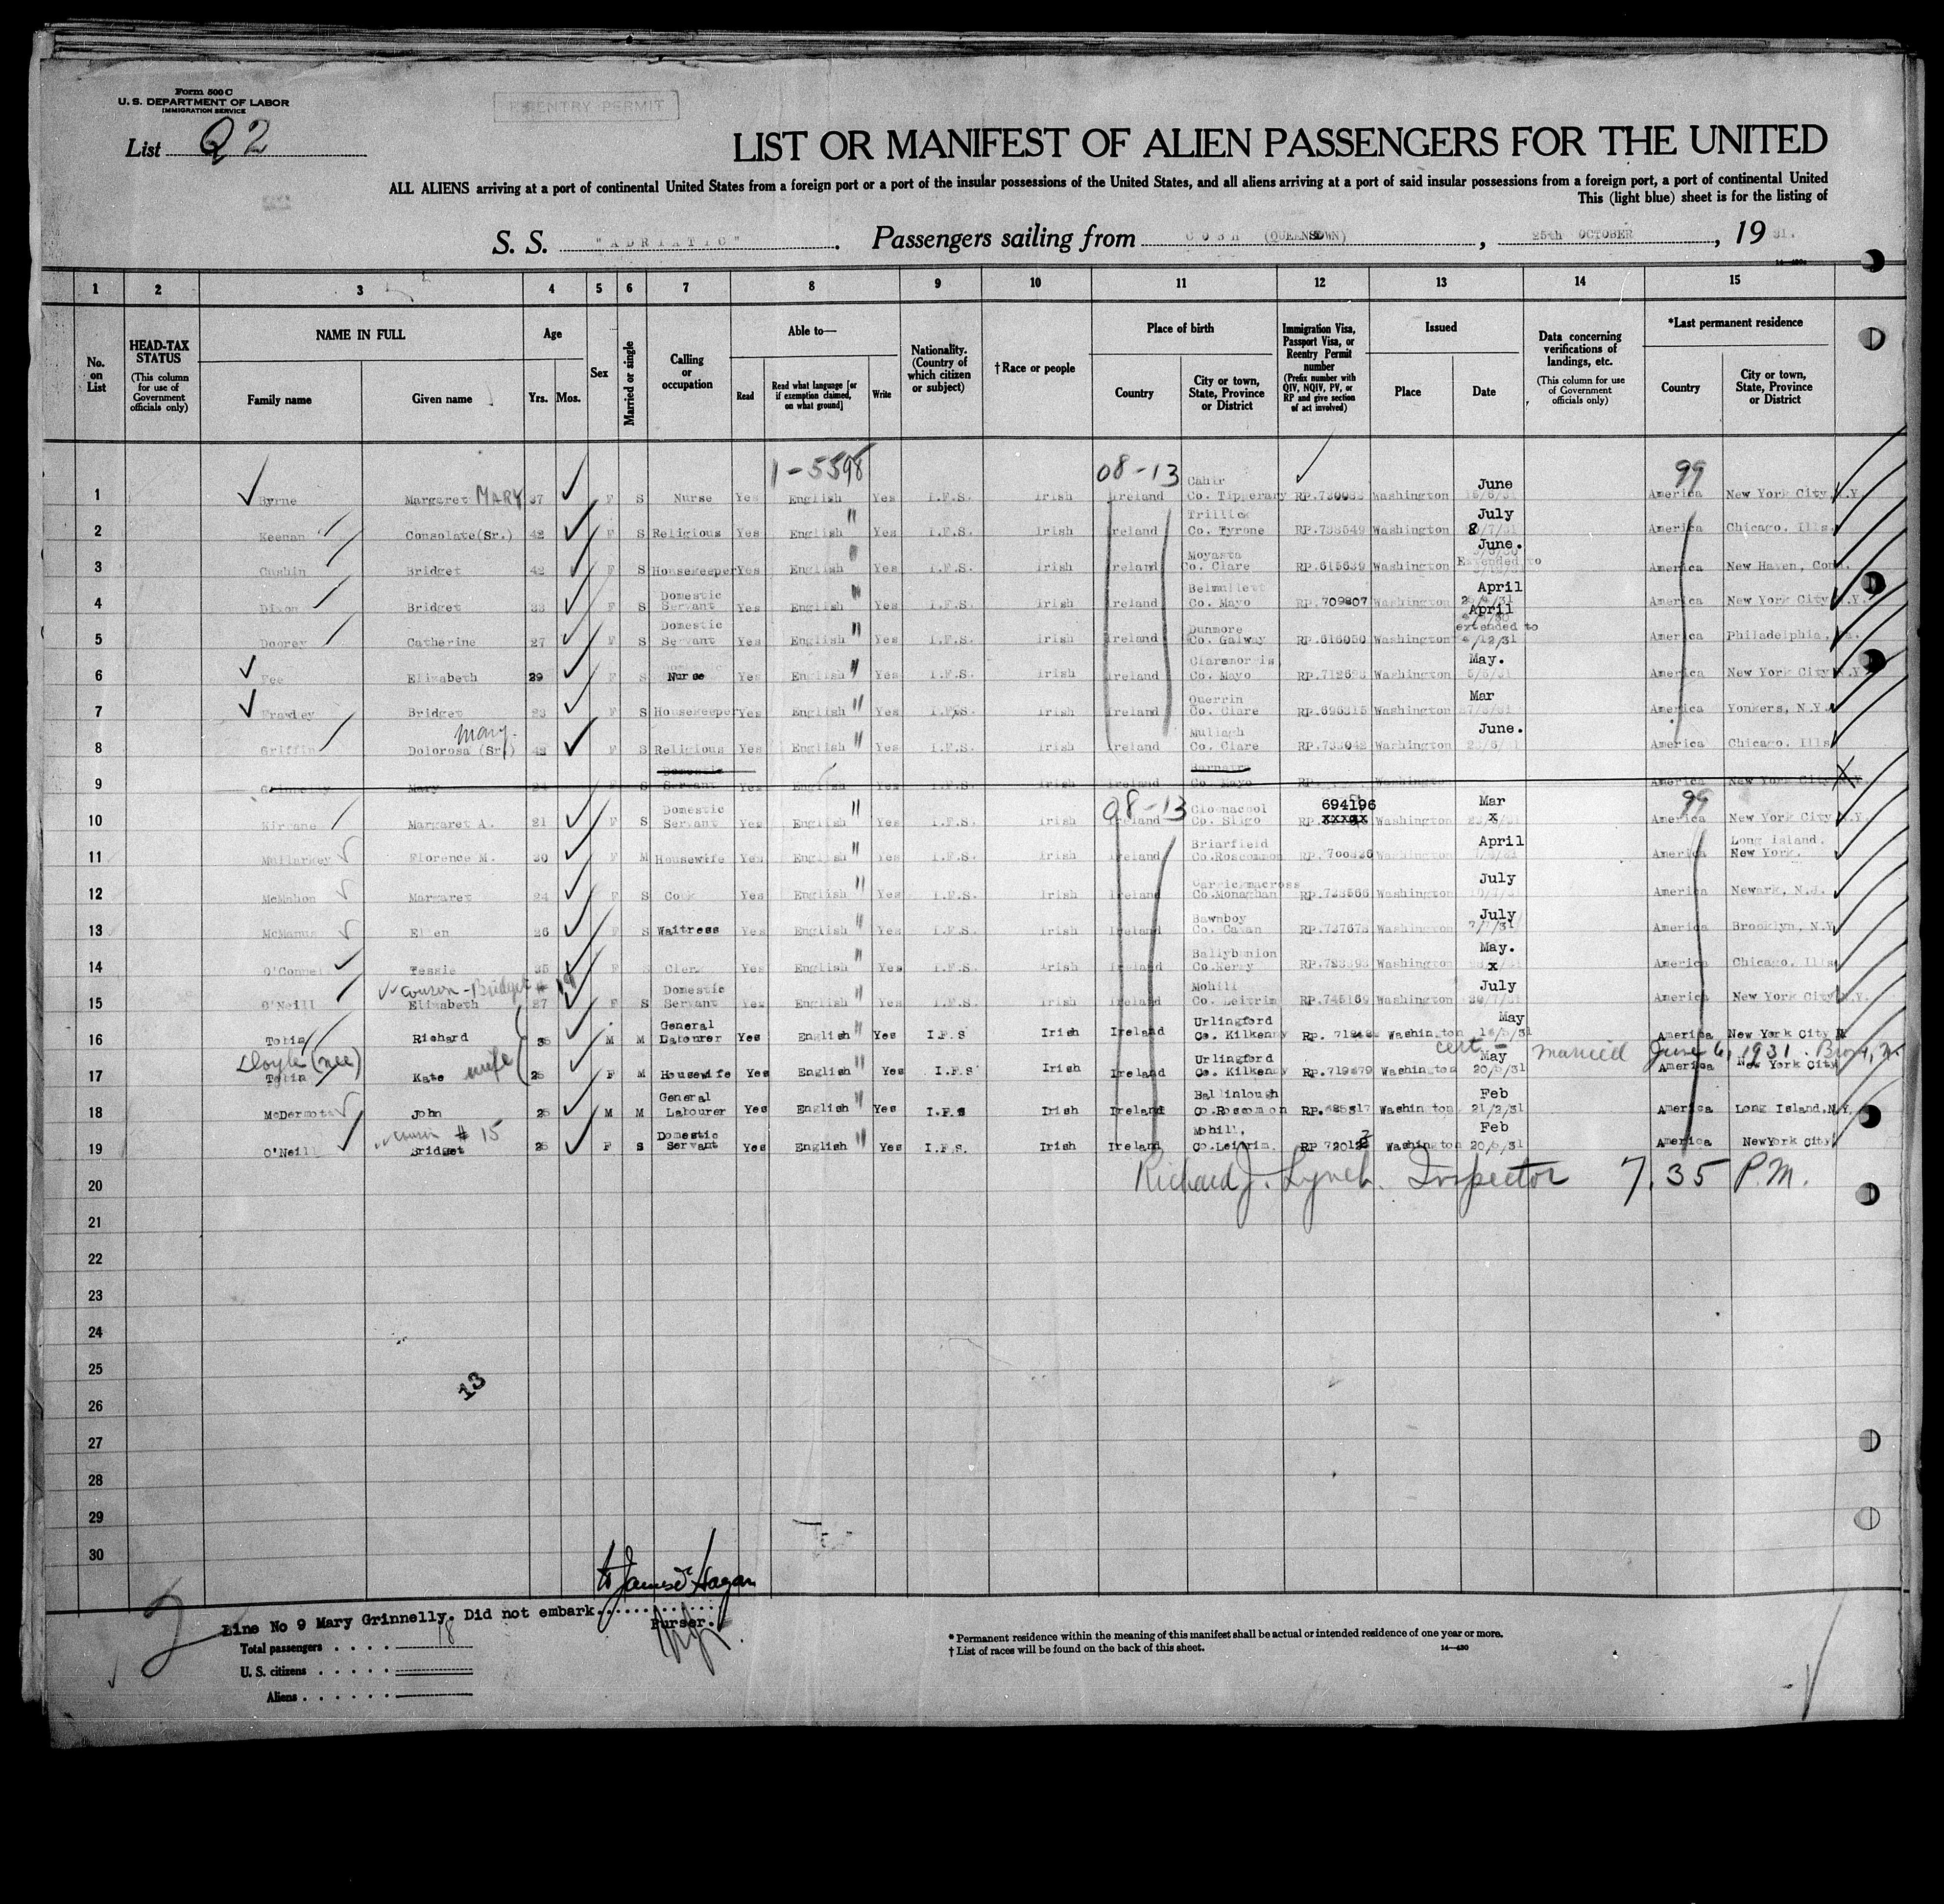 Form 500 C
U. S. DEPARTMENT OF LABOR
IMMIGRATION SERVICE
REENTRY PERMIT
List Q2
LIST OR MANIFEST OF ALIEN PASSENGERS FOR THE UNITED
ALL ALIENS arriving at a port of continental United States from a foreign port or a port of the insular possessions of the United States, and all aliens arriving at a port of said insular possessions from a foreign port, a port of continental United
This (light blue) sheet is for the listing of
S. S. "ADRIATIC". Passengers sailing from COBH (QUEENSTOWN), 25th OCTOBER, 1931.
1 2 3 4 5 6 7 8 9 10 11 12 13 14 15
No. on List
HEAD-TAX STATUS (This column for use of Government officials only)
NAME IN FULL Family name Given name
Age Yrs. Mos.
Sex
Married or single
Calling or occupation
Able to— Read Read what language [or if exemption claimed, on what ground] Write
Nationality. (Country of which citizen or subject)
†Race or people
Place of birth Country City or town, State, Province or District
Immigration Visa, Passport Visa, or Reentry Permit number (Prefix number with QIV, NQIV, PV, or RP and give section of act involved)
Issued Place Date
Data concerning verifications of landings, etc. (This column for use of Government officials only)
*Last permanent residence Country City or town, State, Province or District
1-5598 08-13 99
1 Byrne Margaret MARY 37 F S Nurse Yes English Yes I.F.S. Irish Ireland Cahir Co. Tipperary Washington June America New York City, N.Y.
2 Keenan Consolate(Sr.) 42 F S Religious Yes English " Yes I.F.S. Irish Ireland Trillick Co. Tyrone RP.738549 Washington July 8/7/31 America Chicago. Ills.
3 Cushin Bridget 42 F S Housekeeper Yes English " Yes I.F.S. Irish Ireland Moyasta Co. Clare RP.615639 Washington June. Extended to America New Haven, Conn.
4 Dixon Bridget 33 F S Domestic Servant Yes English " Yes I.F.S. Irish Ireland Belmullett Co. Mayo RP.709807 Washington April America New York City, N.Y.
5 Doorey Catherine 27 F S Domestic Servant Yes English " Yes I.F.S. Irish Ireland Dunmore Co. Galway RP.616050 Washington April extended to America Philadelphia, Pa.
6 Fee Elizabeth 29 F S Nurse Yes English " Yes I.F.S. Irish Ireland Claremorris Co. Mayo Washington May. America New York City N.Y.
7 Frawley Bridget 23 F S Housekeeper Yes English " Yes I.F.S. Irish Ireland Querrin Co. Clare RP.696315 Washington Mar America Yonkers, N.Y.
8 Griffin Mary. Dolorosa (Sr.) 42 F S Religious Yes English " Yes I.F.S. Irish Ireland Mullagh Co. Clare Washington June. America Chicago. Ills
9 Grinnelly Mary 24 F S Domestic Servant Yes English Yes Ireland Co. Mayo RP. Washington America New York City N.Y.
08-13 99
10 Kirrane Margaret A. 21 F S Domestic Servant Yes English " Yes I.F.S. Irish Ireland Cloonacool Co. Sligo 694196 RP. Washington Mar America New York City N.Y.
11 Mullarkey Florence M. 30 F M Housewife Yes English " Yes I.F.S. Irish Ireland Briarfield Co.Roscommon Washington April America Long Island. New York.
12 McMahon Margaret 24 F S Cook Yes English " Yes I.F.S. Irish Ireland Carrickmacross Co.Monaghan RP.738566 Washington July America Newark, N.J.
13 McManus Ellen 26 F S Waitress Yes English " Yes I.F.S. Irish Ireland Bawnboy Co. Cavan Washington July 7/7/31 America Brooklyn, N.Y.
14 O'Connell Tessie 35 F Clerk Yes English " Yes I.F.S. Irish Ireland Ballybunion Co.Kerry Washington May. America Chicago. Ills
15 O'Neill cousin - Bridget # 19 Elizabeth 27 F S Domestic Servant Yes English " Yes I.F.S. Irish Ireland Mohill Co. Leitrim RP.745169 Washington July America New York City N.Y.
16 Tobin Richard 35 M M General Labourer Yes English " Yes I.F.S Irish Ireland Urlingford Co. Kilkenny Washington May America New York City
17 Doyle (nee) Tobin Kate wife 25 F M Housewife Yes English " Yes I.F.S Irish Ireland Urlingford Co. Kilkenny Washington cert May 20/5/31 married June 6, 1931. America New York City
18 McDermott John 25 M M General Labourer Yes English " Yes I.F.S Irish Ireland Ballinlough Co.Roscommon Washington Feb 21/2/31 America Long Island, N.Y.
19 O'Neill cousin # 15 Bridget 25 F S Domestic Servant Yes English " Yes I.F.S. Irish Ireland Mohill, Co.Leitrim. Washington Feb America NewYork City
20 Richard J. Lynch. Inspector 7.35 P.M.
21
22
23
24
25
13
26
27
28
29
30
to James Hagan
Line No 9 Mary Grinnelly. Did not embark.............. Purser.
Total passengers 18
U. S. citizens
Aliens
* Permanent residence within the meaning of this manifest shall be actual or intended residence of one year or more.
† List of races will be found on the back of this sheet. 14—430